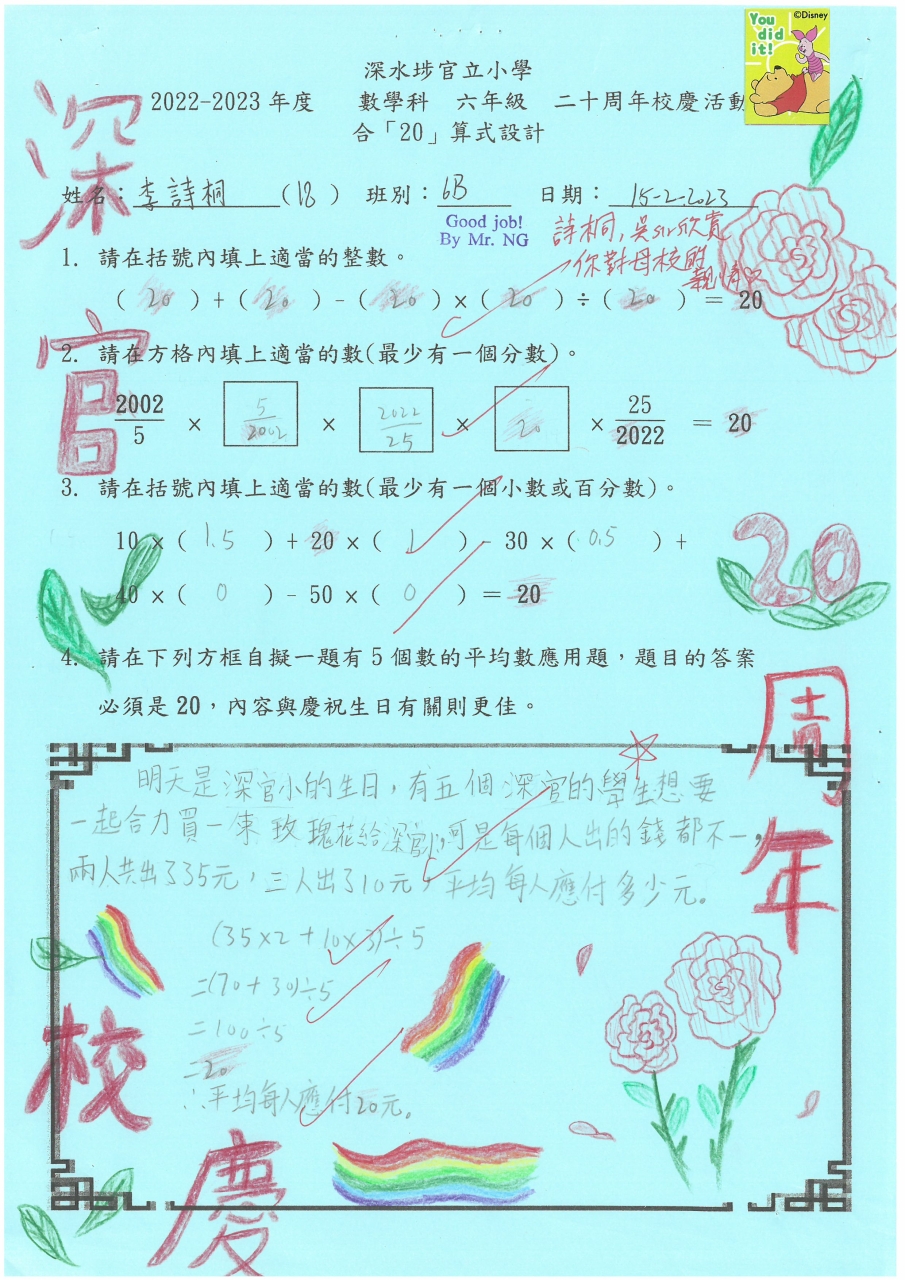 You did it!
©Disney
深水埗官立小學
2022-2023年度 數學科 六年級 二十周年校慶活動
合「20」算式設計
姓名：李詩桐(18) 班別：6B 日期：15-2-2023
Good job!
By Mr. NG
詩桐，吳sir欣賞
你對母校的
親情
1. 請在括號內填上適當的整數。
(20)+(20)-(20)×(20)÷(20)=20
2. 請在方格內填上適當的數(最少有一個分數)。
2002/5 × 5/2002 × 2022/25 × 20 × 25/2022 = 20
3. 請在括號內填上適當的數(最少有一個小數或百分數)。
10×(1.5)+20×(1)-30×(0.5)+
40×(0)-50×(0)=20
4. 請在下列方框自擬一題有5個數的平均數應用題，題目的答案
必須是20，內容與慶祝生日有關則更佳。
明天是深官小的生日，有五個深官的學生想要
一起合力買一束玫瑰花給深官小，可是每個人出的錢都不一，
兩人共出了35元，三人出了10元，平均每人應付多少元。
(35×2+10×3)÷5
=(70+30)÷5
=100÷5
=20
∴平均每人應付20元。
深
官
20
周
年
校
慶